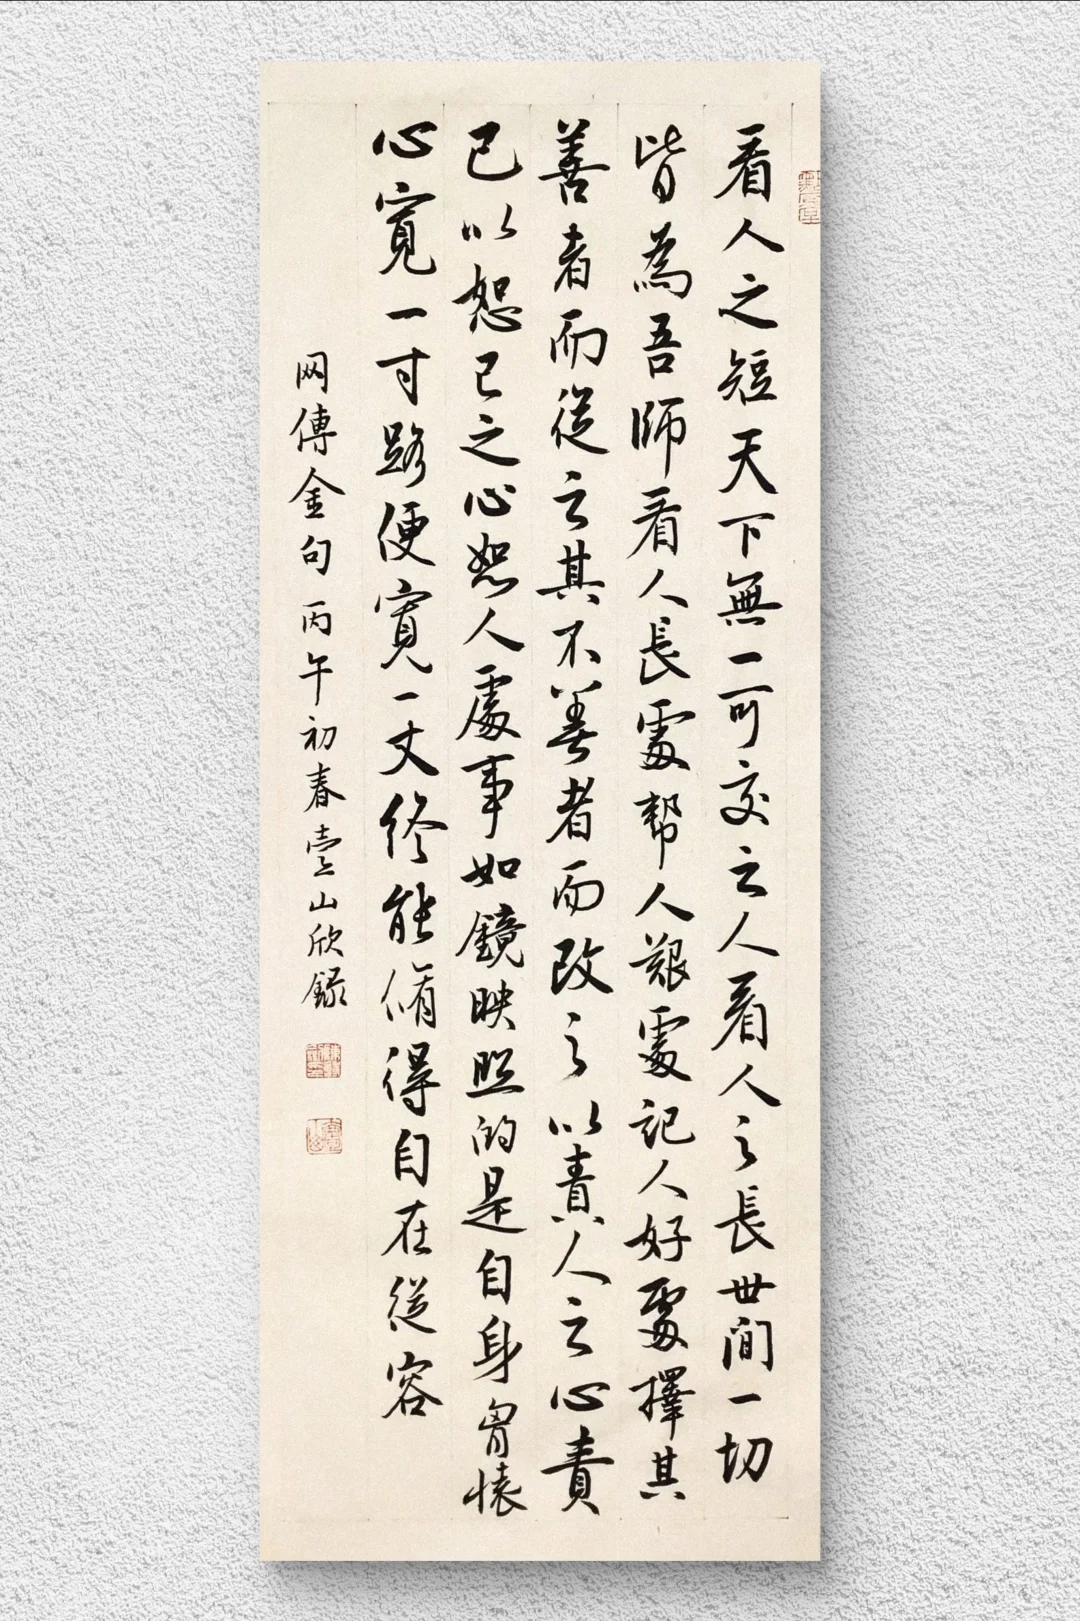 看人之短天下無一可交之人看人之長世間一切
皆為吾師看人長處帮人艱處記人好處擇其
善者而從之其不善者而改之以責人之心責
己以恕己之心恕人處事如鏡映照的是自身胷懐
心寬一寸路便寬一丈終能脩得自在從容
网傳金句丙午初春壺山欣録